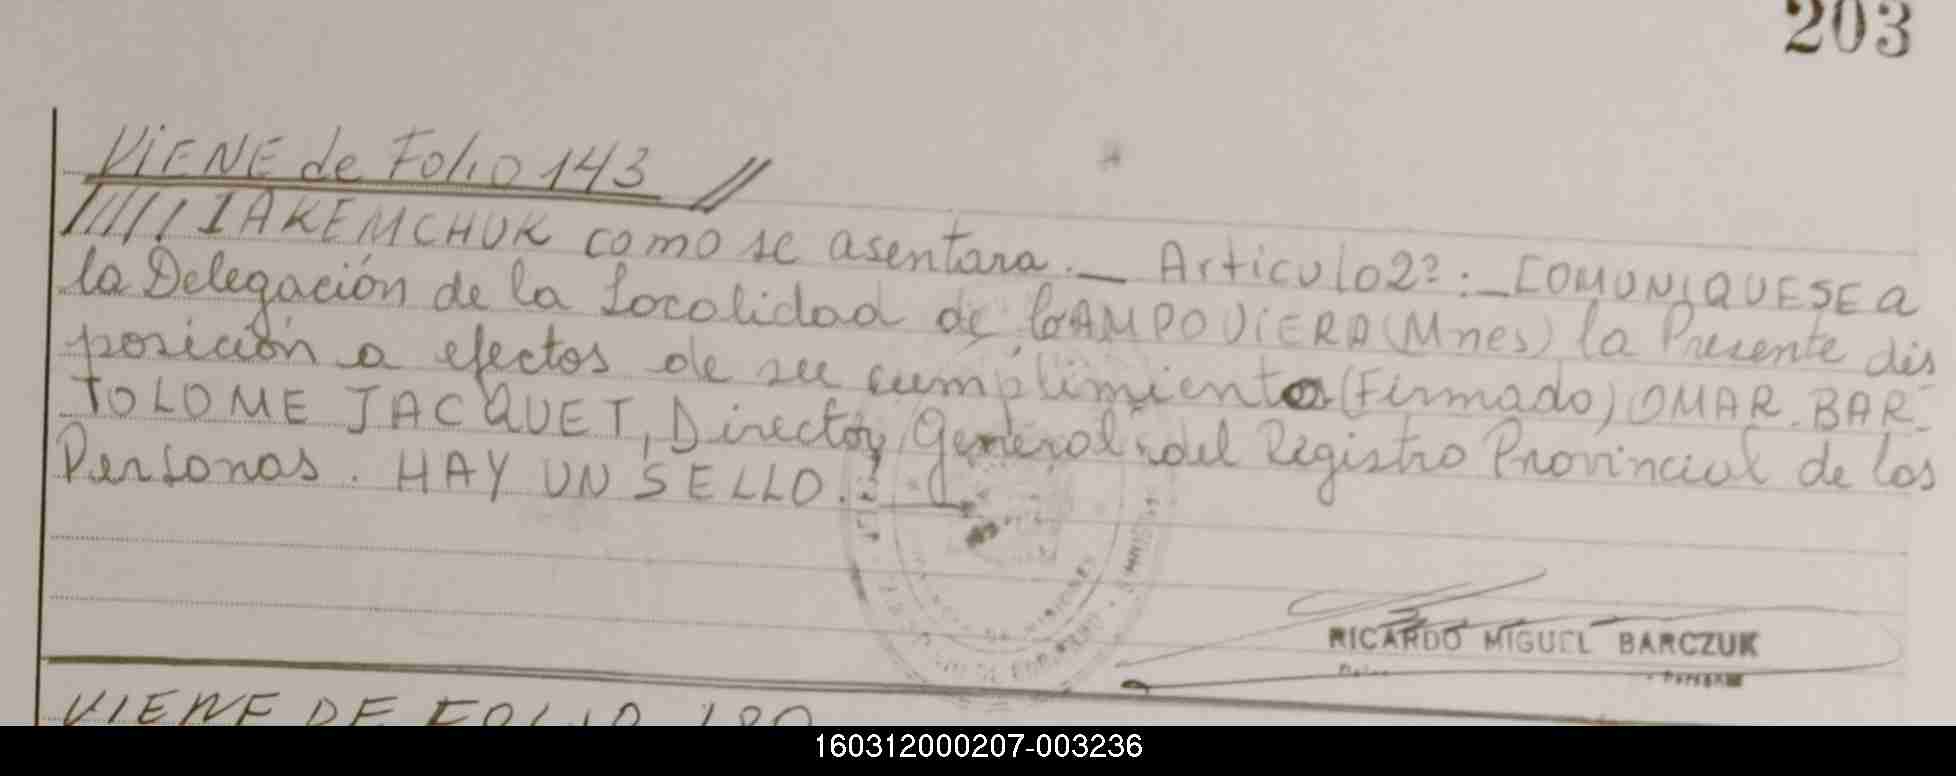 203
VIENE de Folio 143 //
///// IAKEMCHUK como se asentara._ Articulo 2º:_ COMUNIQUESE a
la Delegación de la Localidad de CAMPO VIERA (Mnes) la Presente dis
posición a efectos de su cumplimiento (Firmado) OMAR. BAR-
TOLOME JACQUET, Director General del Registro Provincial de las
Personas. HAY UN SELLO.
RICARDO MIGUEL BARCZUK
VIENE DE FOLIO
160312000207-003236